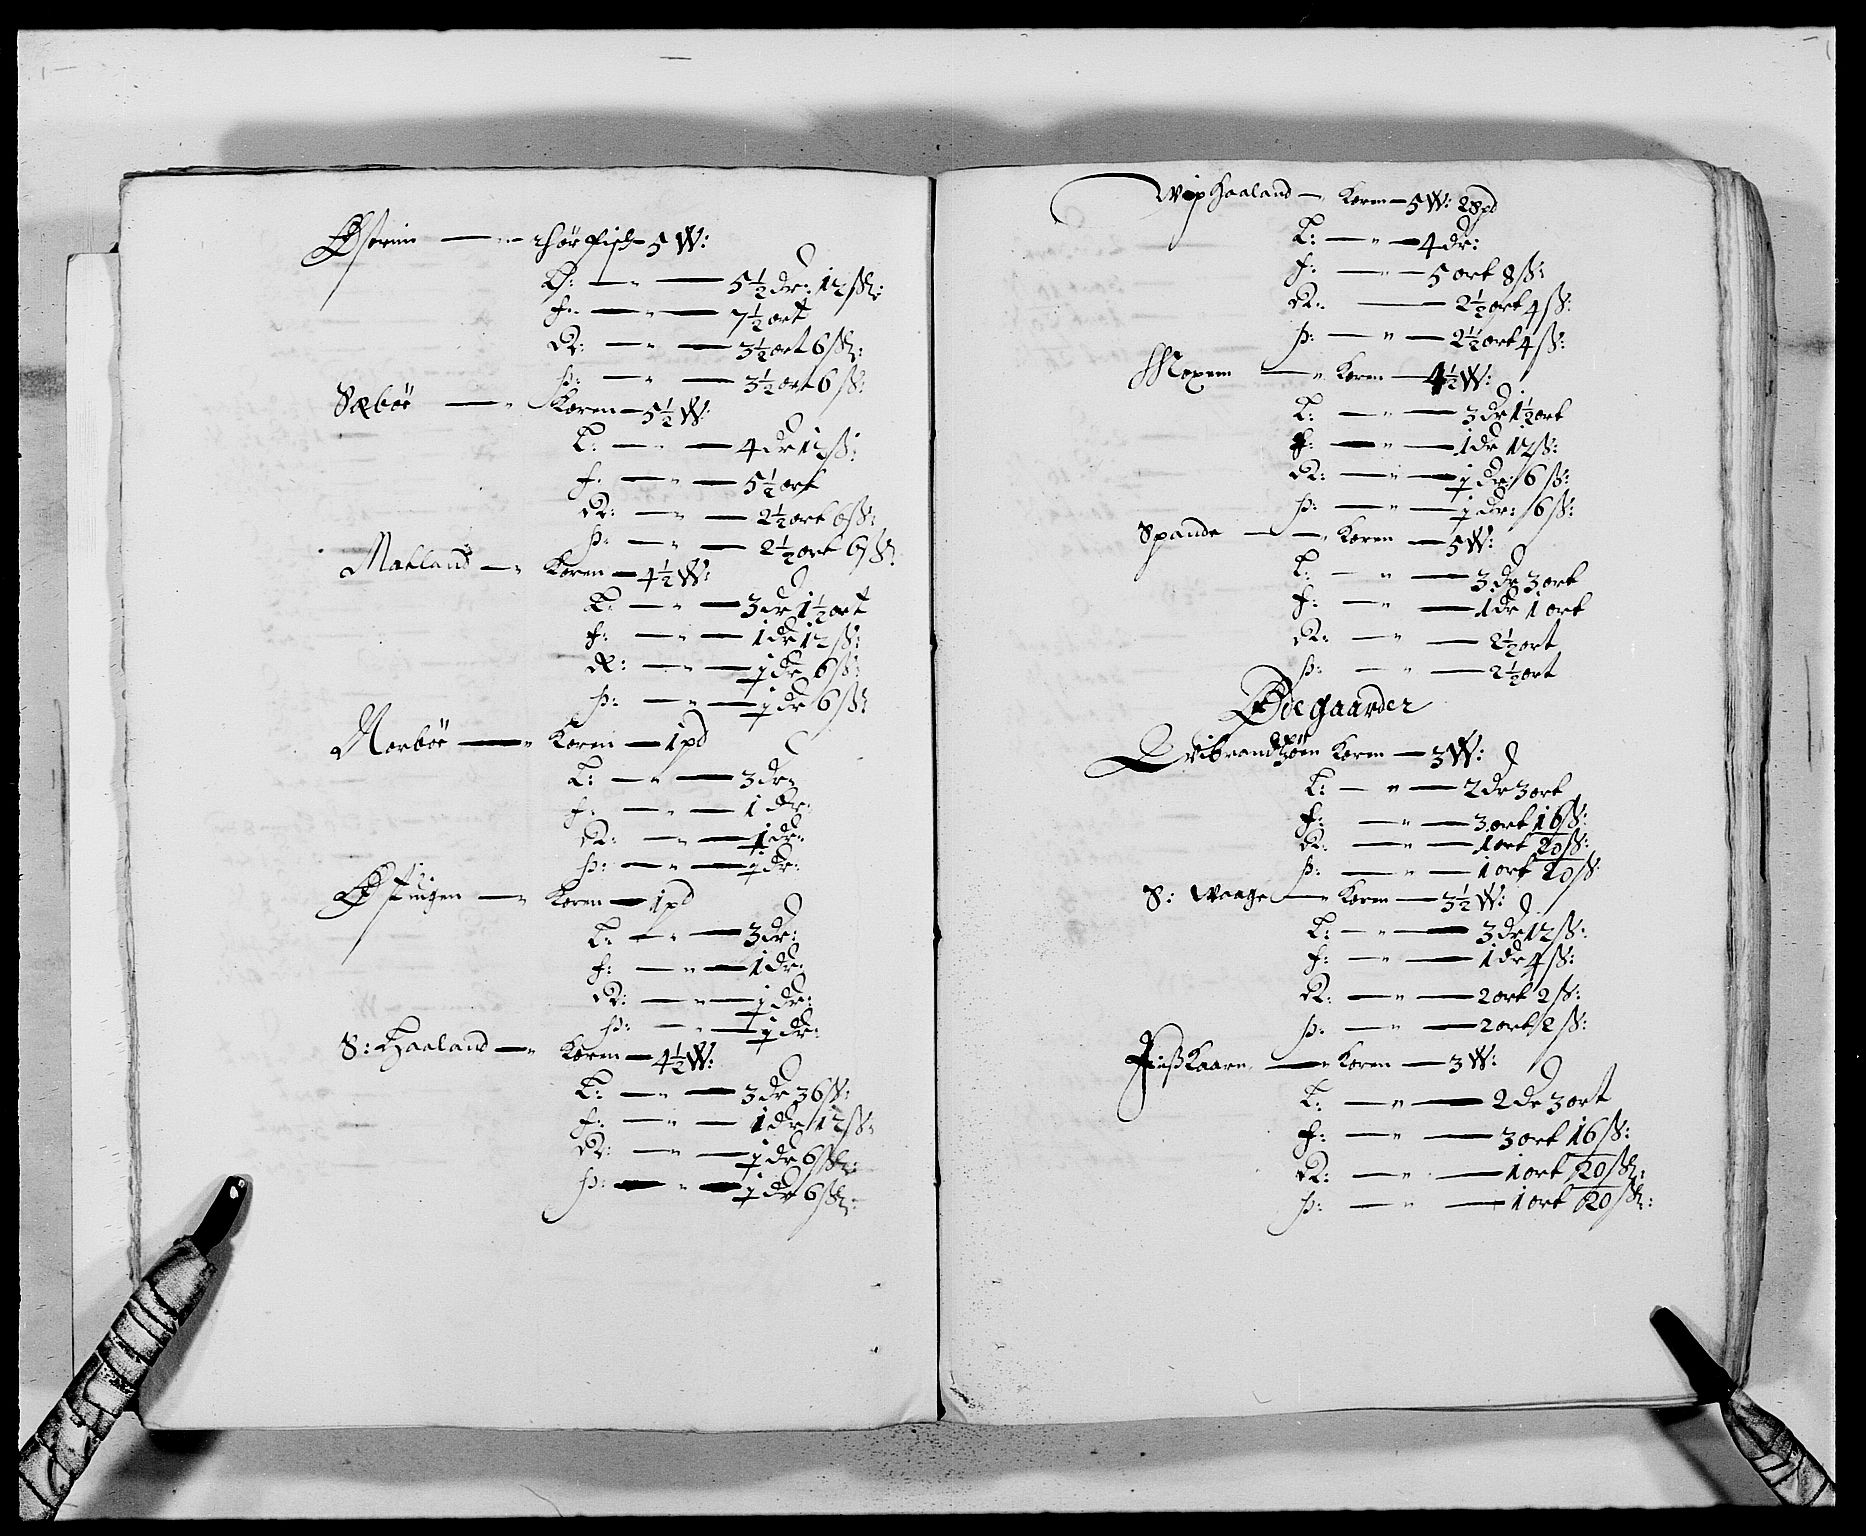 Østrim — " thör fisch – 5 W:
L: — " — 5½ dr: 12 ß:
f: — " — 7½ ort
D: — " — 3½ ort 6 ß:
Þ: — " — 3½ ort 6 ß:
Sæböe — " Koren – 5½ W:
L: — " — 4 dr 12 ß:
f: — " — 5½ ort
D: — " — 2½ ort 6 ß:
Þ: — " — 2½ ort 6 ß:
Matland — " Koren – 4½ W:
L: — " — 3 dr 1½ ort
f: — " — 1 dr 12 ß:
D: — " — ½ dr 6 ß:
Þ: — " — ½ dr 6 ß:
Norböe — " Koren — 1 pd
L: — " — 3 dr
f: — " — 1 dr:
D: — " — ½ dr:
Þ: — " — ½ dr:
Østingen — " Koren — 1 pd
L: — " — 3 dr:
f: — " — 1 dr:
D: — " — ½ dr:
Þ: — " — ½ dr:
S: Haaland — " Koren – 4½ W:
L: — " — 3 dr 36 ß:
f: — " — 1 dr 12 ß:
D: — " — ½ dr 6 ß:
Þ: — " — ½ dr 6 ß:
Haaland — " Koren – 5 W: 28 pd
L: — " — 4 dr:
f: — " — 5 ort 8 ß:
D: — 2½ ort 4 ß:
Þ: — " — 2½ ort 4 ß:
— " Koren — 4½ W:
L: — " — 3 dr 1½ ort
f: — " — 1 dr 12 ß:
D: — " — ½ dr: 6 ß:
Þ: — " — ½ dr: 6 ß:
Spande — " Koren — 5 W:
L: — " — 3 dr 3 ort
f: — " — 1 dr 1 ort
D: — " — 2½ ort
Þ: — " — 2½ ort
Ødegaarder
Koren — 3 W:
L: — " — 2 dr 3 ort
f: — " — 3 ort 16 ß:
D: — " — 1 ort 20 ß:
Þ: — " — 1 ort 20 ß:
S: Waage — " Koren — 3½ W:
L: — " — 3 dr 12 ß:
f: — " — 1 dr 4 ß:
D: — " — 2 ort 2 ß:
Þ: — " — 2 ort 2 ß:
— " Koren — 3 W:
L: — " — 2 dr 3 ort
f: — " — 3 ort 16 ß:
D: — " — 1 ort 20 ß:
Þ: — " — 1 ort 20 ß: